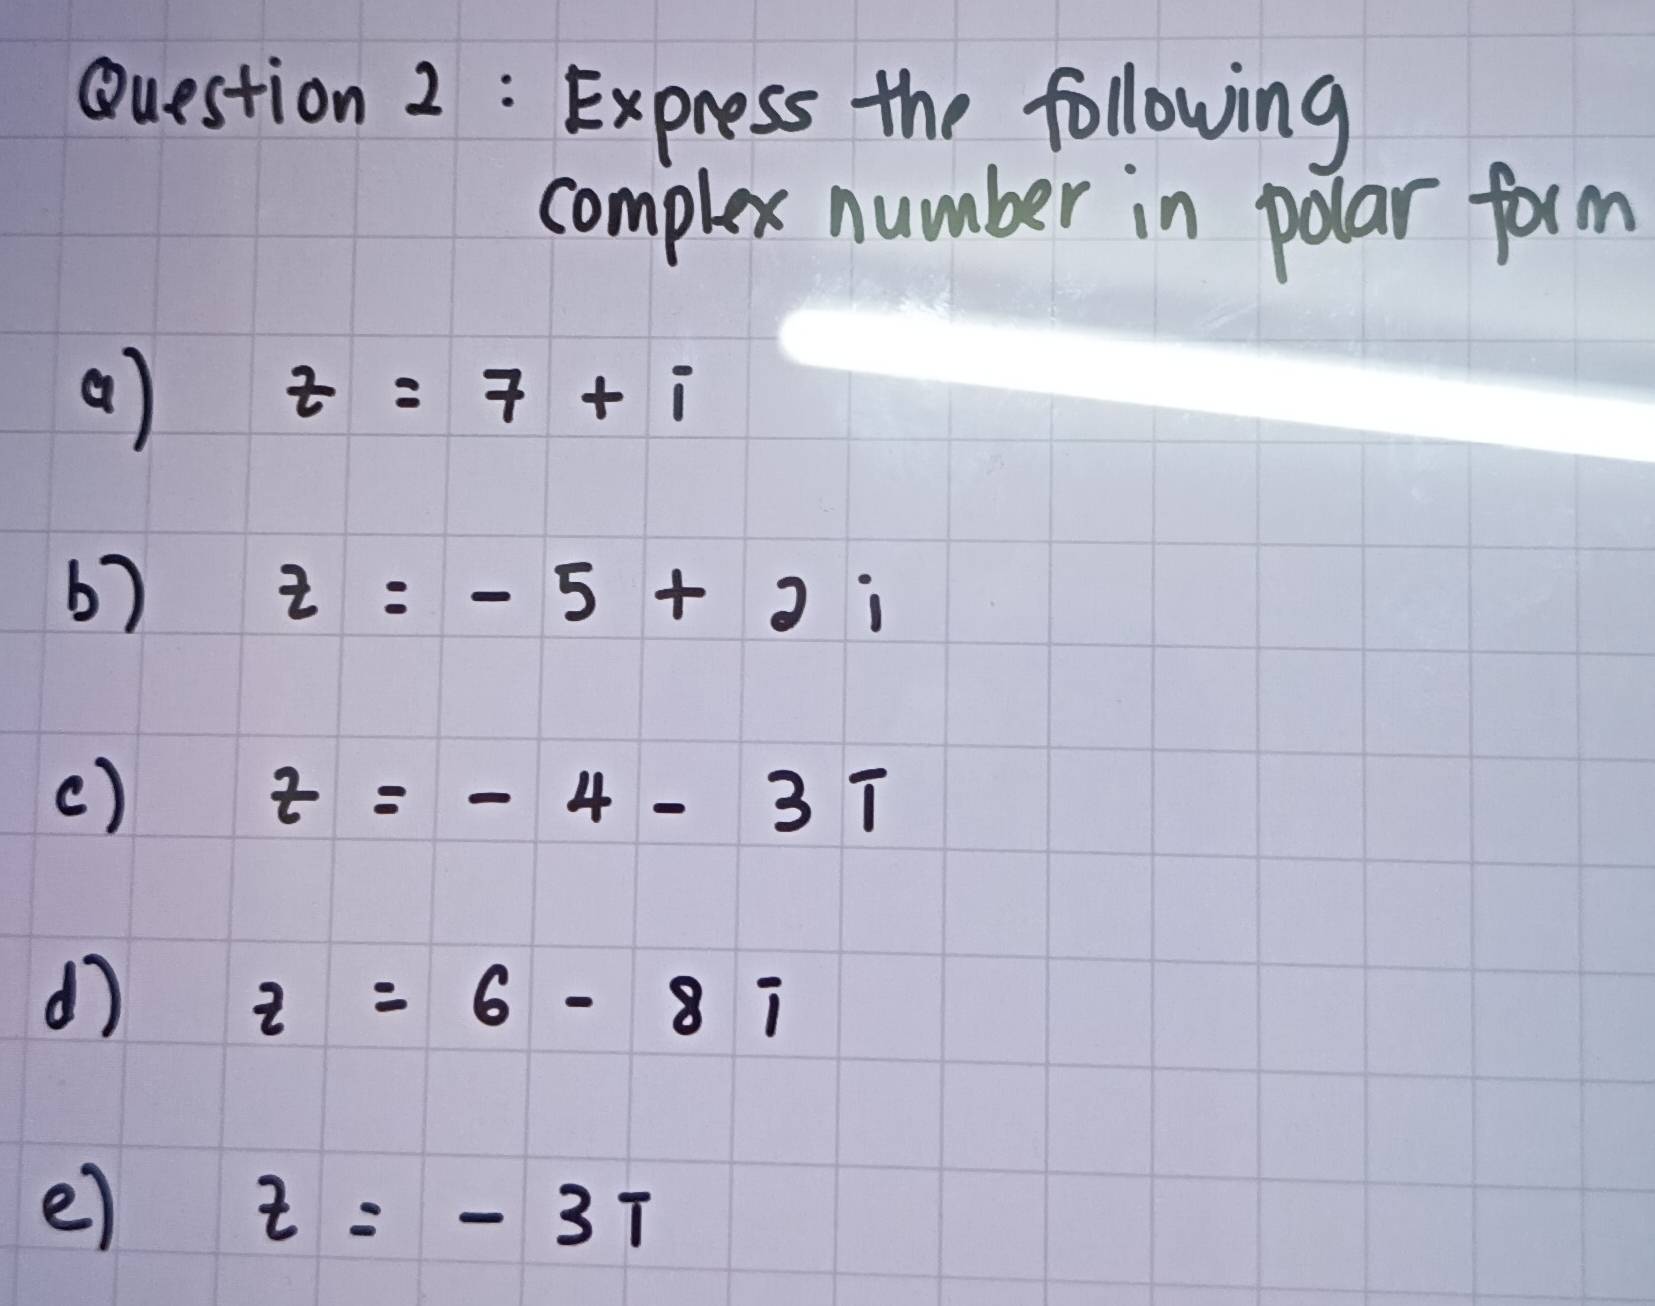 Question 2 : Express the following
complex number in polar form
a) z = 7 + i
b) z = - 5 + 2 i
c) z = - 4 - 3 i
d) z = 6 - 8 i
e) z = - 3 i